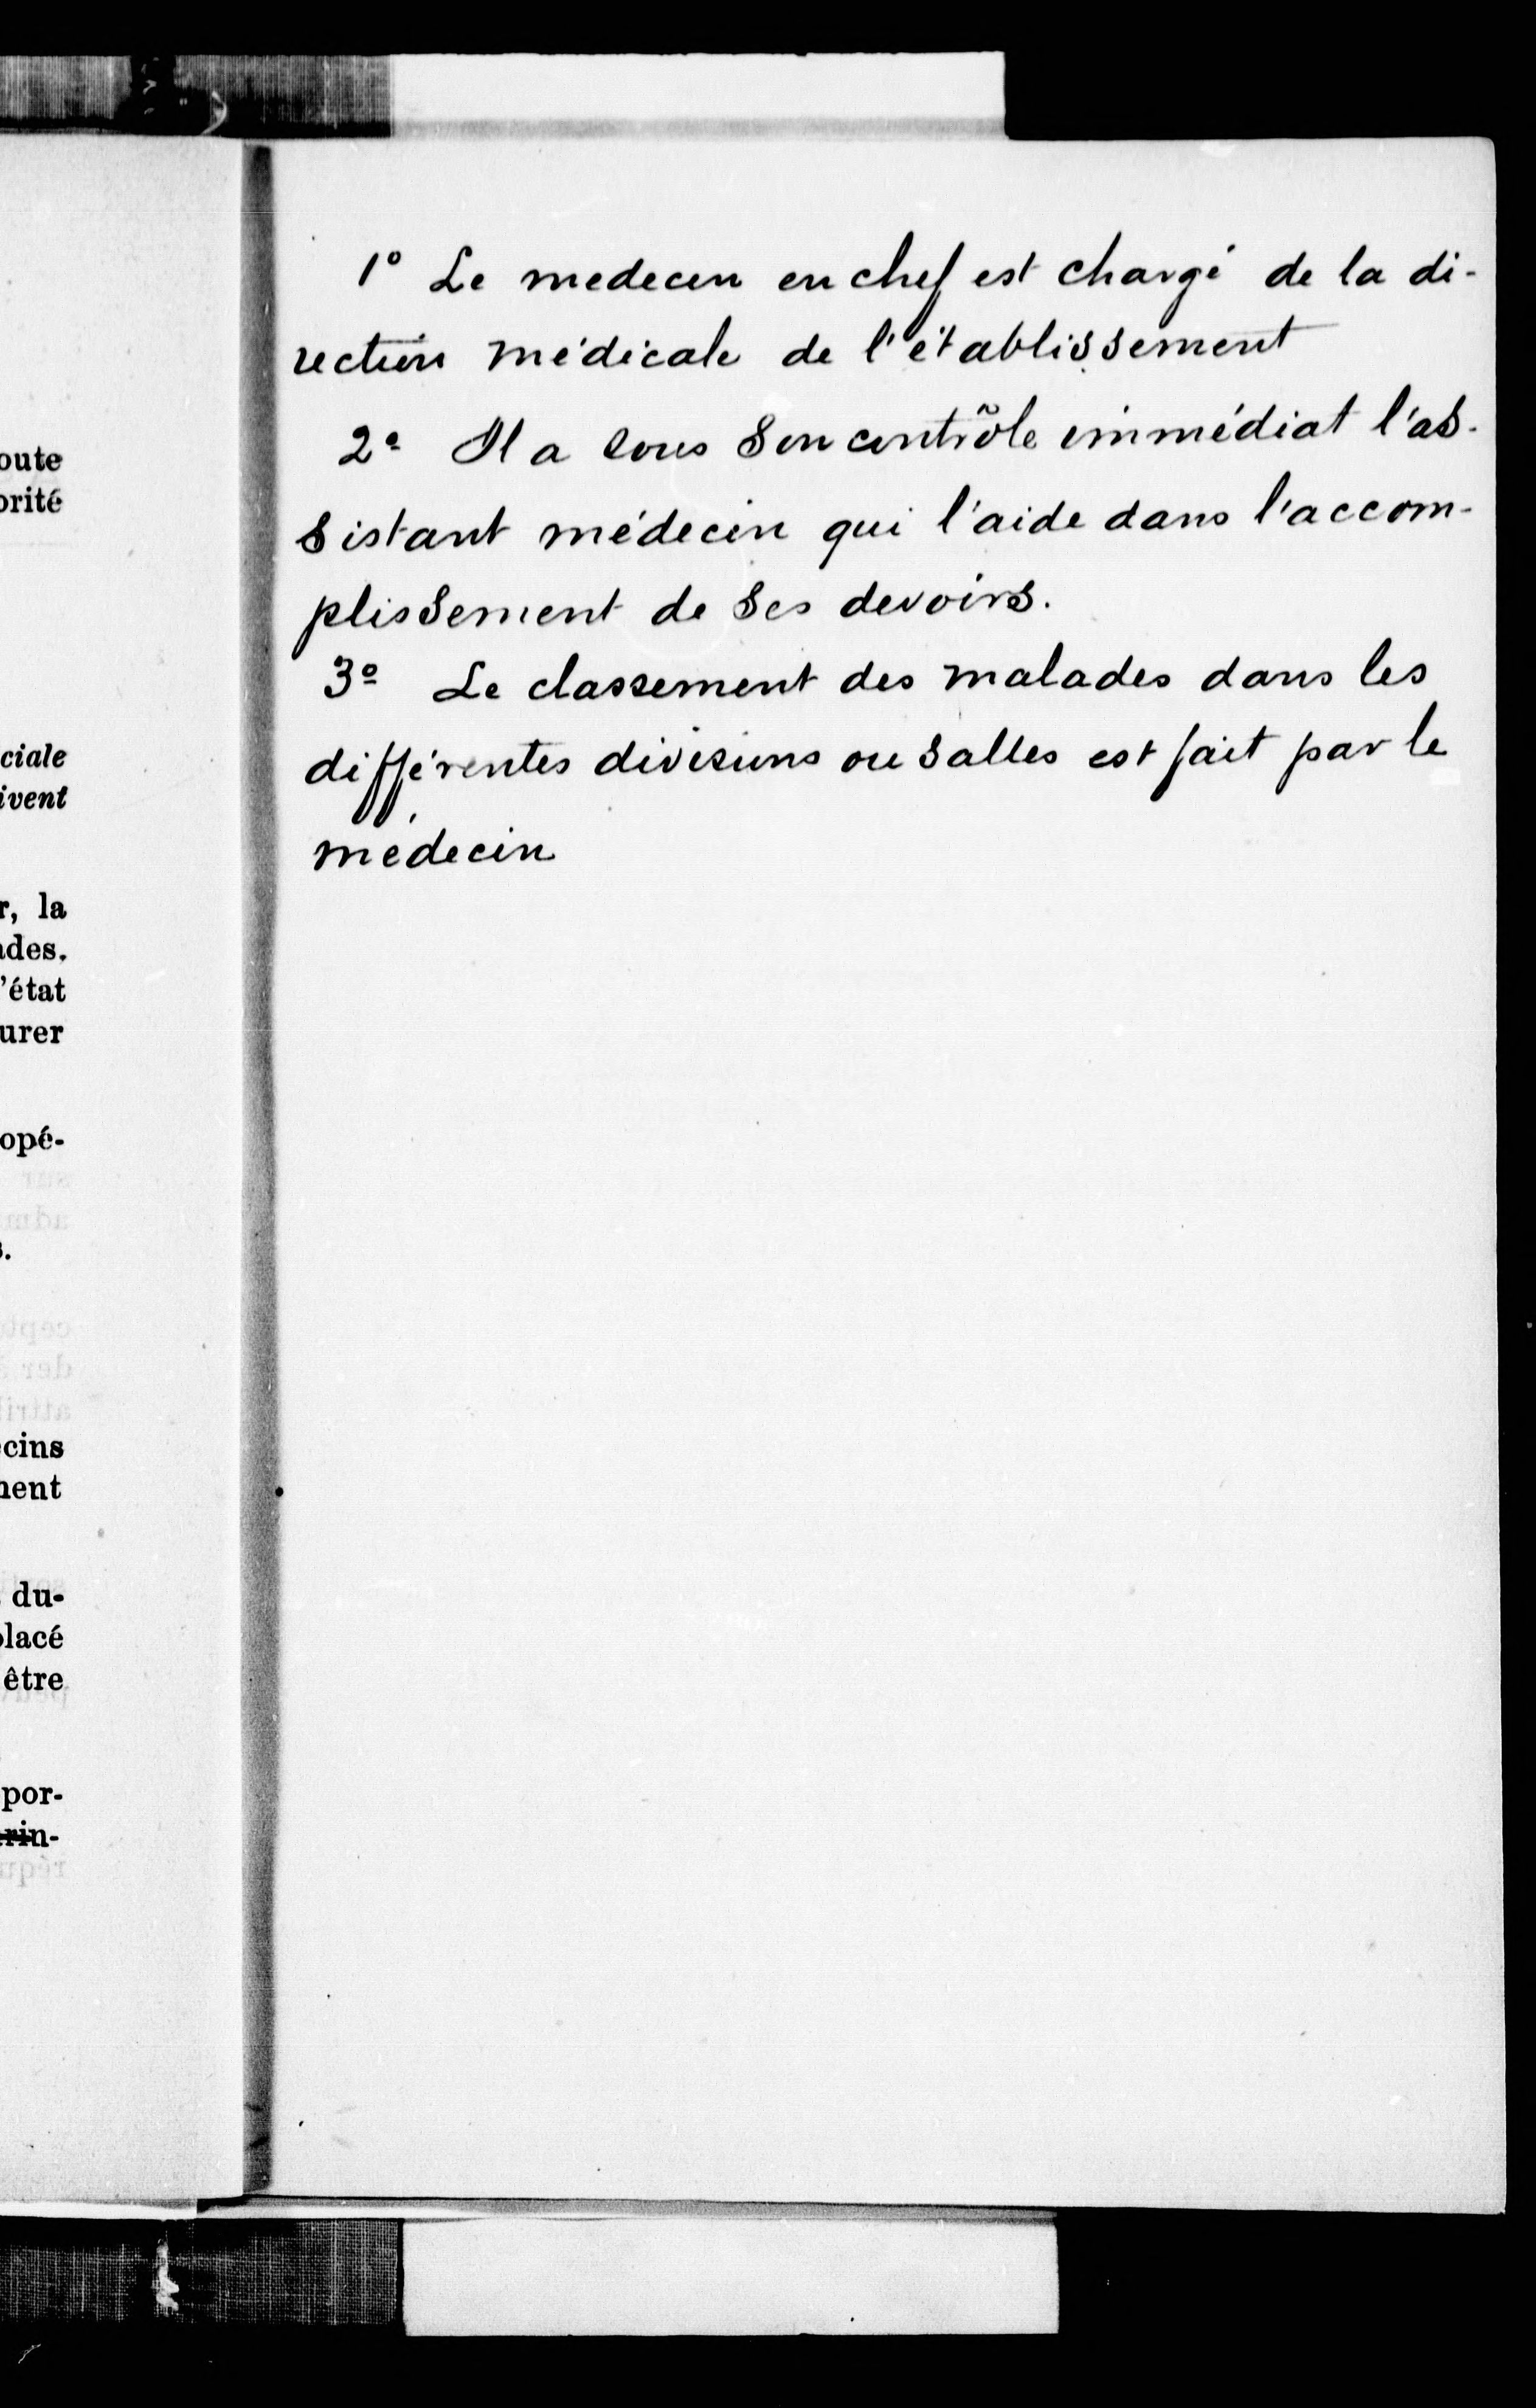 oute
orité
ciale
ivent
r, la
ades.
'état
urer
opé-
s.
ecins
ment
du-
placé
être
por-
rin-
1º Le medecin en chef est chargé de la di-
rection médicale de l'établissement
2º Il a sous son contrôle immédiat l'as-
sistant médecin qui l'aide dans l'accom-
plissement de ses devoirs.
3º Le classement des malades dans les
différentes divisions ou salles est fait par le
médecin